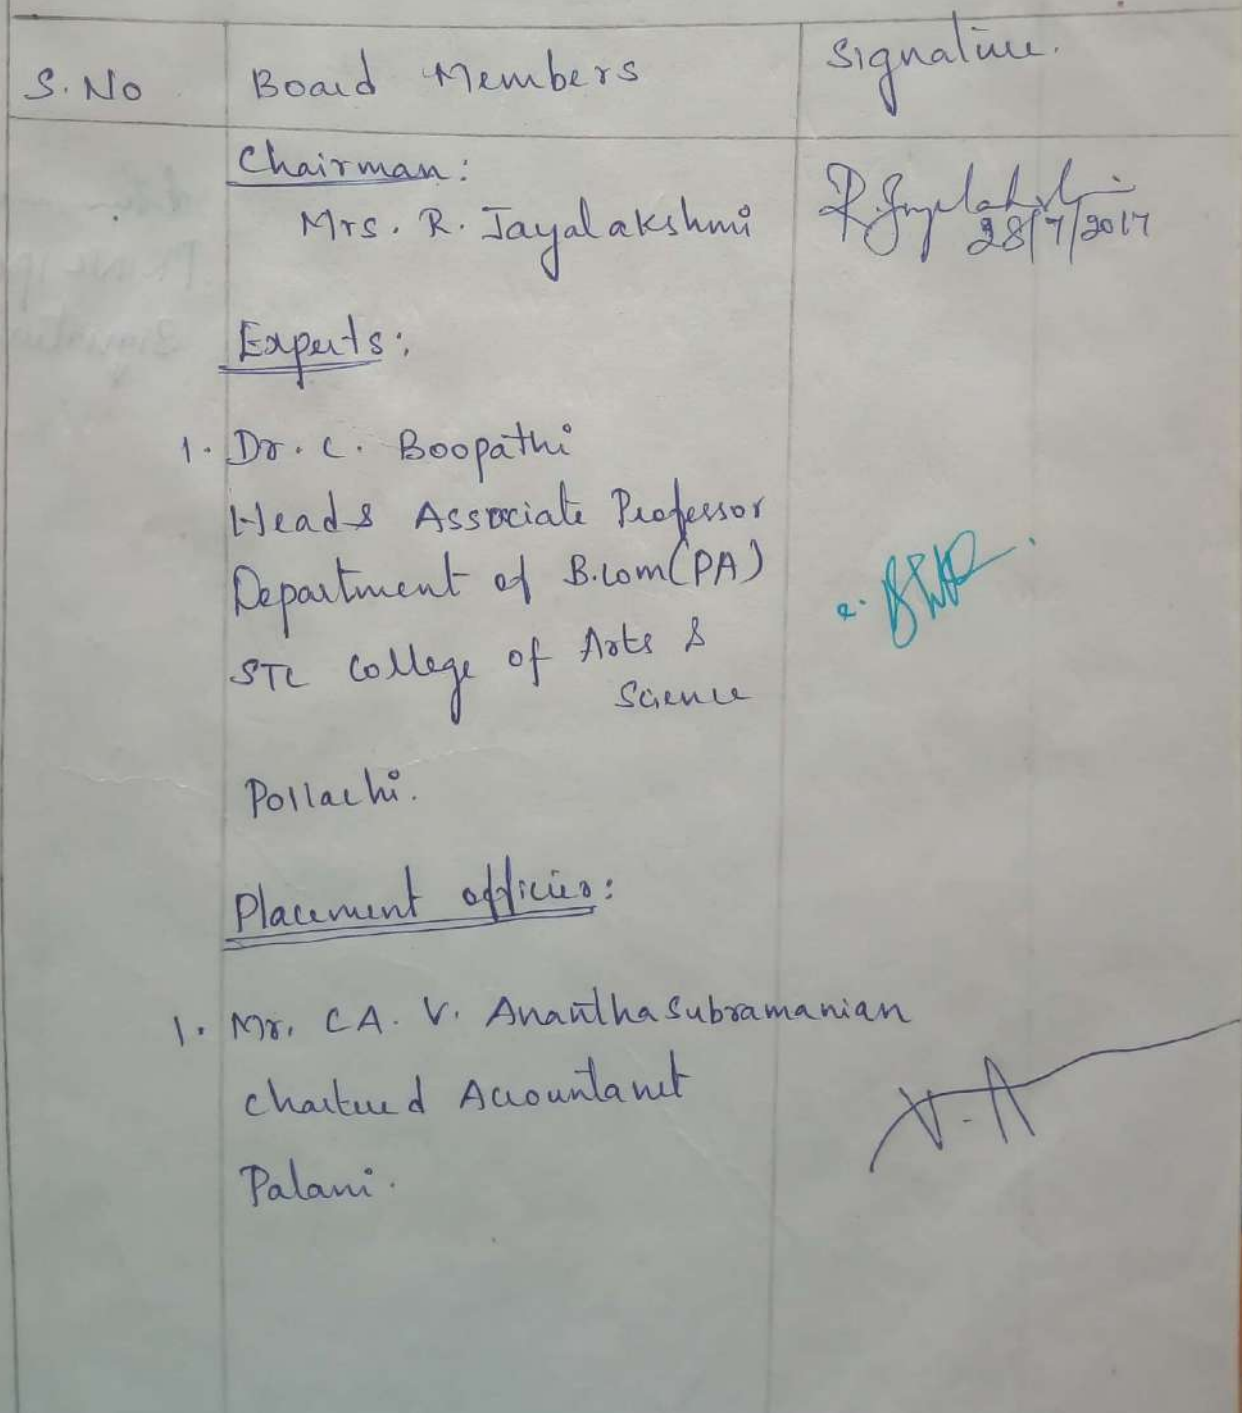 S.No Board Members Signature.
Chairman:
Mrs. R. Jayalakshmi R. Jayalakshmi
28/7/2017
Experts:
1. Dr. C. Boopathi
Head & Associate Professor
Department of B.Com(PA)
STC College of Arts &
Science
Pollachi.
Placement officer:
1. Mr. CA. V. Ananthasubramanian
Chartered Accountanet
V. A
Palani.